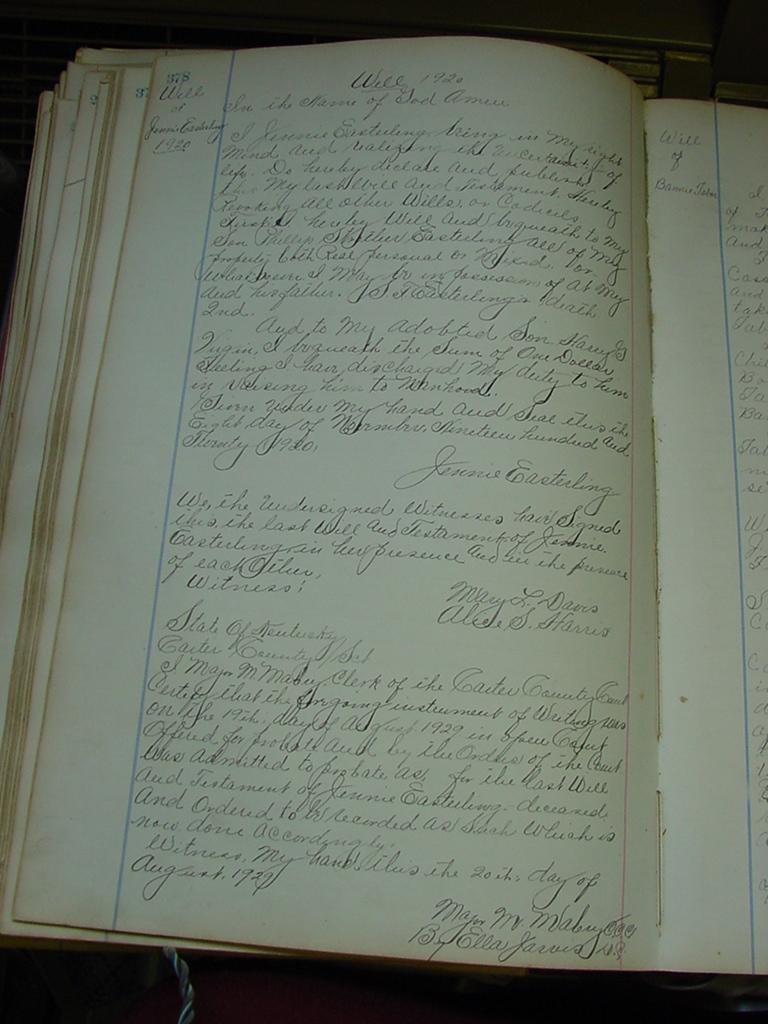 378
37
Will
of
Jennie Easterling
1920
Will 1920
In the Name of God Amen
I Jennie Easterling being in My right
Mind and realizing the uncertainty of
life. Do hereby declare and publish
this My last Will and Testament. Hereby
Revoking All other Wills, or Codicils
First I hereby Will and bequeath to My
Son Phillip Easterling all of My
property both Real personal or Mixed. or
Whatsoever I May be in possession of At My
and his father. Easterling's death
2nd.
And to My Adobted Son Harry G
I bequeath the Sum of One Dollar
Feeling I have discharged My duty to him
in raising him to Manhood.
Given Under My hand and Seal this the
Eight day of November, Nineteen hundred and
Twenty 1920.
Jennie Easterling
We, the Undersigned Witnesses have Signed
this, the last Will and Testament of Jennie
Easterling in her presence and in the presence
of each Other.
Witness:
Mary L. Davis
Alice S. Harris
State Of Kentucky
Carter County Sct
I Major M Mabry Clerk of the Carter County Court
Certify that the foregoing instrument of Writing was
on the 19th. day of August 1929 in open Court
Offered for probate and by the Orders of the Court
Was admitted to probate as, for the last Will
and Testament of Jennie Easterling. deceased,
And Ordered to be recorded as Such Which is
now done Accordingly.
Witness, My hand, this the 20th. day of
August, 1929
Major M. Mabry CCCC
By Ella Jarvis D.C.
Will
of